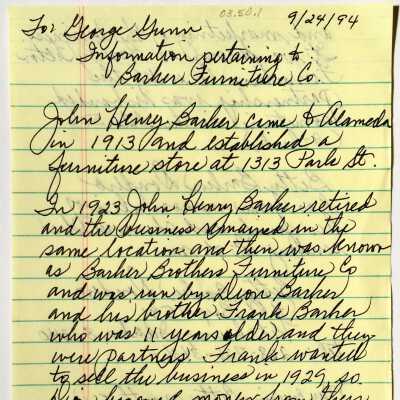 03.50.1
To: George Gunn 9/24/94
Information pertaining to:
Barker Furniture Co.
John Henry Barker came to Alameda
in 1913 and established a
furniture store at 1313 Park St.
In 1923 John Henry Barker retired
and the business remained in the
same location and then was known
as Barker Brothers Furniture Co
and was run by Dion Barker
and his brother Frank Barker
who was 11 years older and they
were partners. Frank wanted
to sell the business in 1929, so
money from